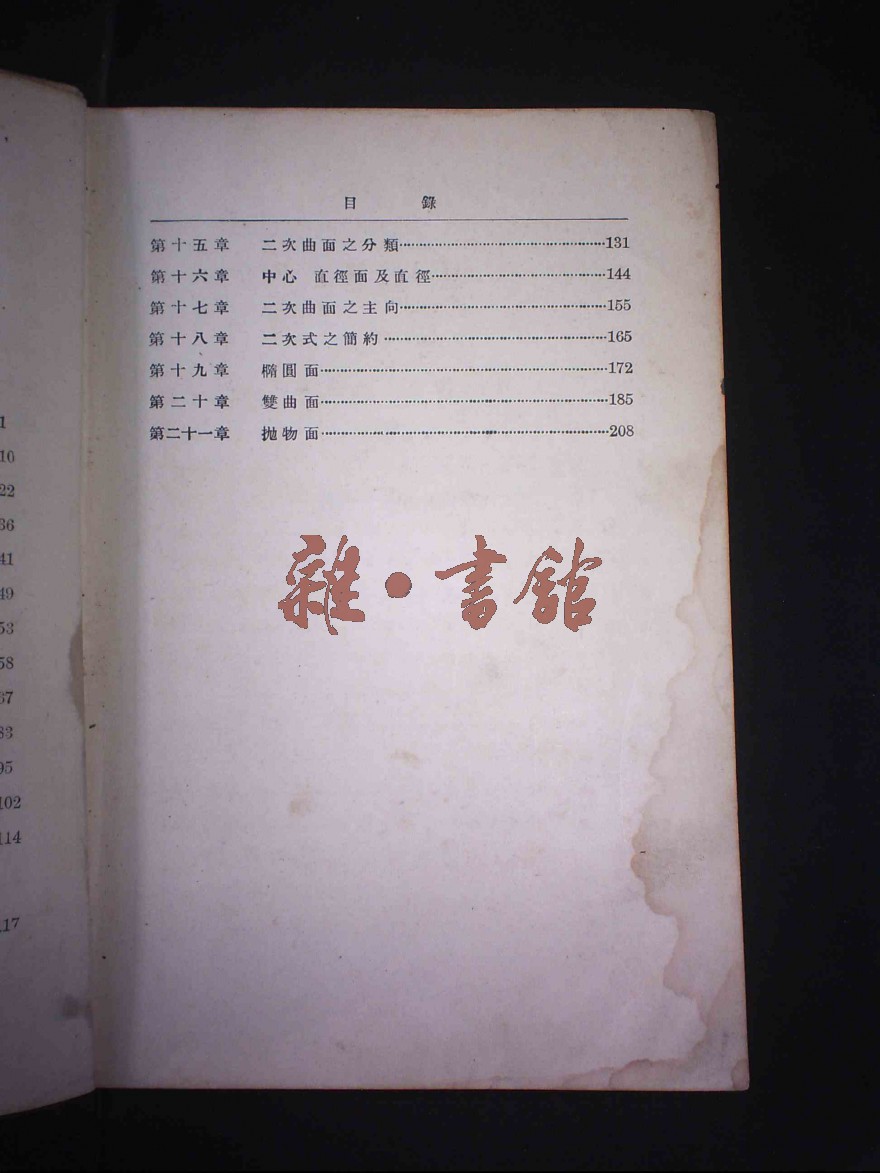 1
10
22
36
41
49
53
58
67
83
95
102
114
117
目 錄
第十五章 二次曲面之分類……131
第十六章 中心 直徑面及直徑……144
第十七章 二次曲面之主向……155
第十八章 二次式之簡約……165
第十九章 橢圓面……172
第二十章 雙曲面……185
第二十一章 拋物面……208
雜·書館